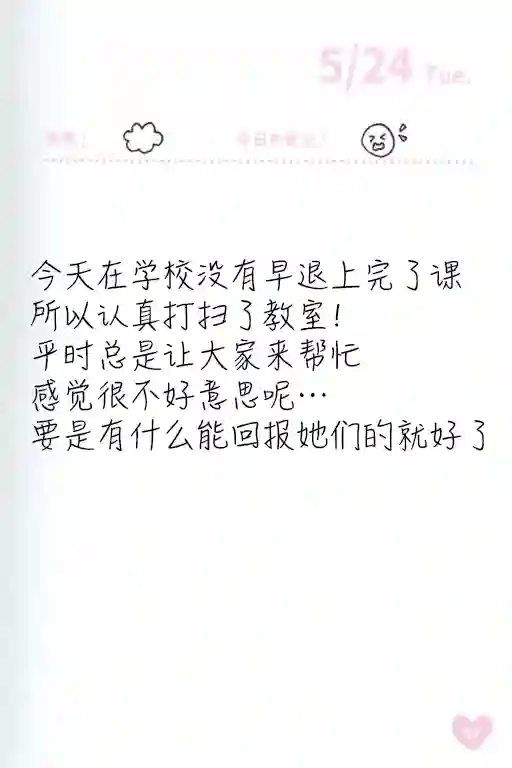 5/24 Tue.
今天在学校没有早退上完了课
所以认真打扫了教室!
平时总是让大家来帮忙
感觉很不好意思呢…
要是有什么能回报她们的就好了